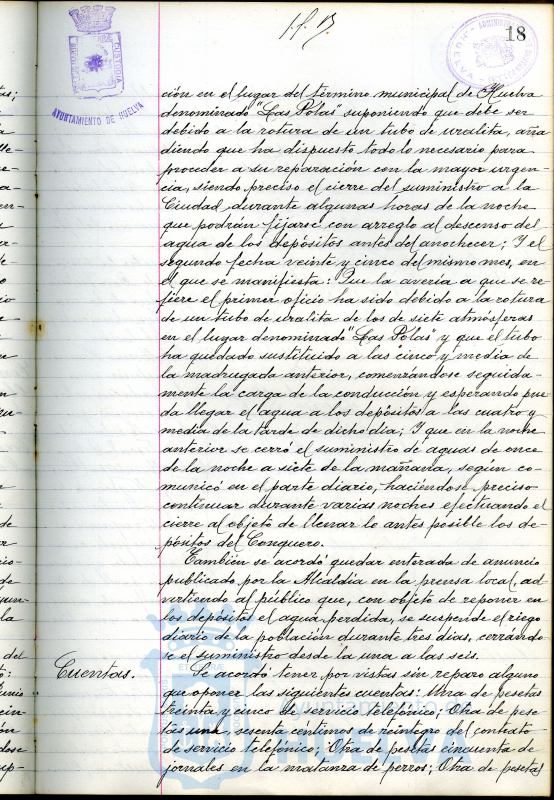 18
AYUNTAMIENTO DE HUELVA
ción en el lugar del término municipal de Huelva
denominado "Las Polas" suponiendo que debe ser
debido a la rotura de un tubo de uralita, aña
diendo que ha dispuesto todo lo necesario para
proceder a su reparación con la mayor urgen-
cia, siendo preciso el cierre del suministro a la
Ciudad durante algunas horas de la noche
que podrán fijarse con arreglo al descenso del
agua de los depósitos antes del anochecer; Y el
segundo fecha veinte y cinco del mismo mes, en
el que se manifiesta: Que la avería a que se re-
fiere el primer oficio ha sido debido a la rotura
de un tubo de uralita de los de siete atmósferas
en el lugar denominado "Las Polas" y que el tubo
ha quedado sustituido a las cinco y media de
la madrugada anterior, comenzándose seguida-
mente la carga de la conducción y esperando pue-
da llegar el agua a los depósitos a las cuatro y
media de la tarde de dicho dia; Y que en la noche
anterior se cerró el suministro de aguas de once
de la noche a siete de la mañana, según co-
municó en el parte diario, haciéndose preciso
continuar durante varias noches efectuando el
cierre al objeto de llenar lo antes posible los de-
pósitos del Conquero.
También se acordó quedar enterada de anuncio
publicado por la Alcaldía en la prensa local, ad-
virtiendo al público que, con objeto de reponer en
los depósitos el agua perdida, se suspende el riego
diario de la población durante tres dias, cerrándo
se el suministro desde la una a las seis.
Cuentas. Se acordó tener por vistas sin reparo alguno
que oponer las siguientes cuentas: Una de pesetas
treinta y cinco de servicio telefónico; Otra de pese
tas una, sesenta céntimos de reintegro del contrato
de servicio telefónico; Otra de pesetas cincuenta de
jornales en la matanza de perros; Otra de pesetas